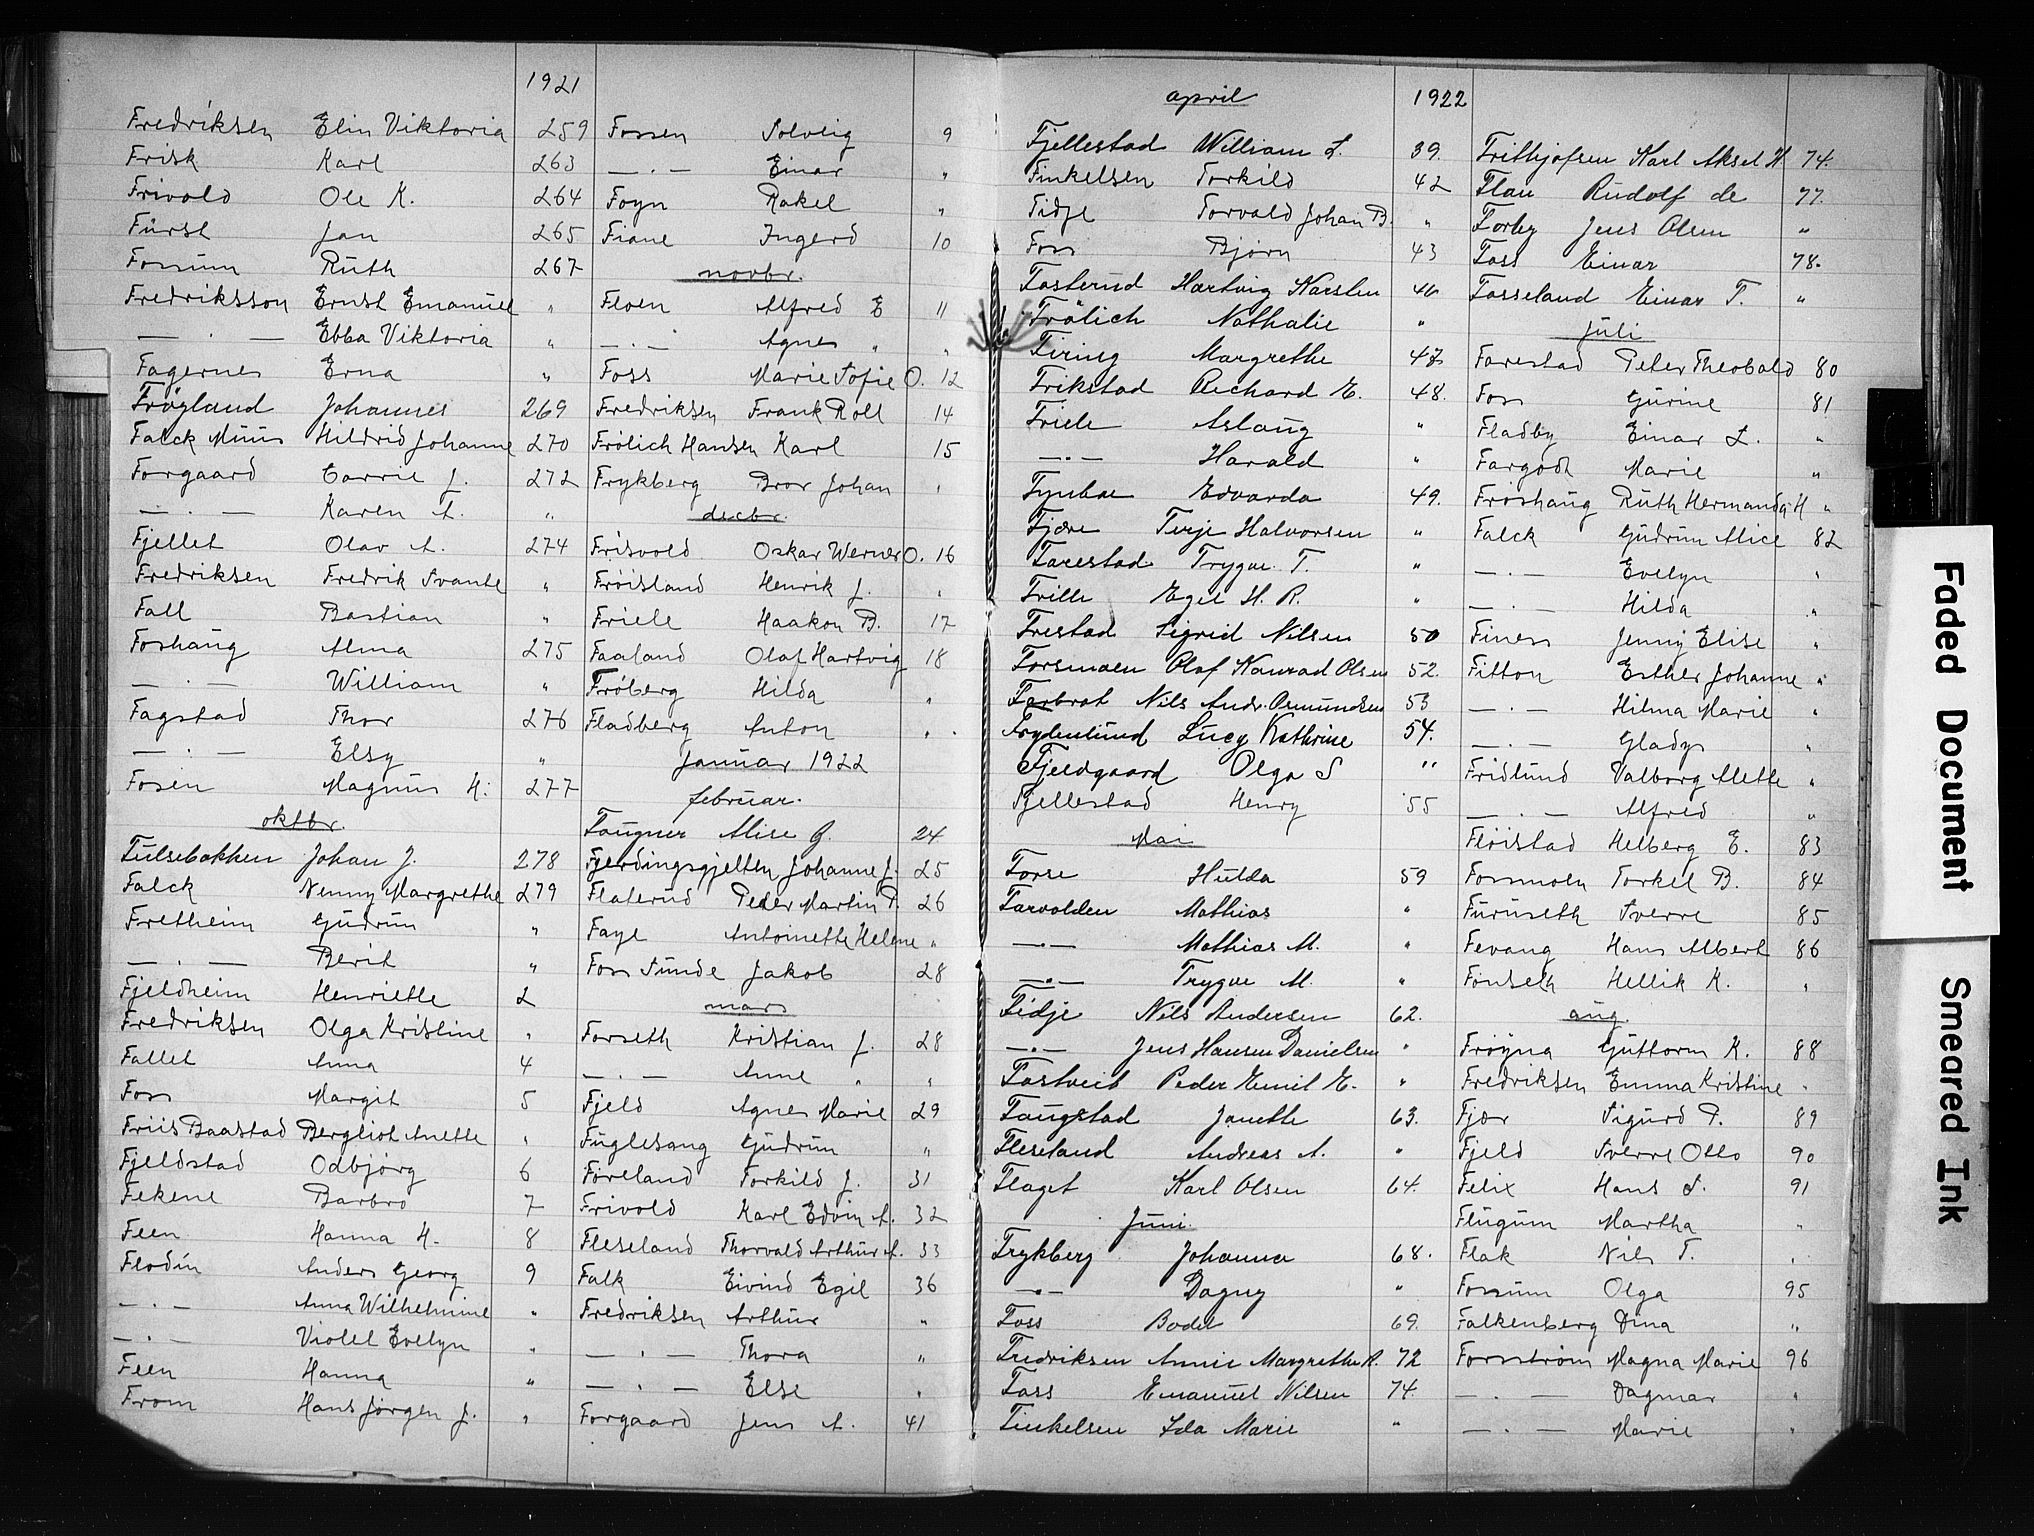 1921
Fredriksen Elin Viktoria 259
Frisk Karl 263
Frivold Ole K. 264
Fürst Jan 265
Fossum Ruth 267
Fredriksson Ernst Emanuel "
— . — Ebba Viktoria "
Fagernes Erna "
Frøgland Johannes 269
Falck Muus Hildrid Johanne 270
Forgaard Carrie J. 272
— . — Karen A. "
Fjellet Olav A. 274
Fredriksen Fredrik Svante "
Fall Bastian "
Foshaug Alma 275
— . — William "
Fagstad Thor 276
— . — Elsy "
Fosen Magnus H. 277
oktbr.
Fulsebakken Johan J. 278
Falck Nenny Margrethe 279
Fretheim Gudrun "
— . — Berit "
Fjeldheim Henriette 2
Fredriksen Olga Kristine "
Fallet Anna 4
Foss Margit 5
Friis Baastad Bergliot Anette "
Fjeldstad Odbjørg 6
Fekene Barbro 7
Feen Hanna H. 8
Flodin Anders Georg 9
— . — Anna Wilhelmine "
— . — Violet Evelyn "
Feen Hanna "
From Hans Jørgen J. "
Fossen Solveig 9
— . — Einar "
Foyn Rakel "
Fiane Ingerd 10
novbr.
Floen Alfred E "
— . — Agnes " "
Foss Marie Sofie O. 12
Fredriksen Frank Roll 14
Frølich Hansen Karl 15
Frykberg Bror Johan "
decbr.
Frisvold Oskar Werner O. 16
Frøisland Henrik J. "
Friele Haakon B. 17
Faaland Olaf Hartvig 18
Frøberg Hilda "
Fladberg Anton "
Januar 1922
februar.
Faugner Alise G. 24
Fjerdingsgjelten Johanne J. 25
Flaterud Peder Martin P. 26
Faye Antoinette Helene "
Foss Sunde Jakob 28
mars
Forseth Kristian J. 28
— . — Anne " "
Fjeld Agnes Marie 29
Fuglesang Gudrun "
Føreland Torkild J. 31
Frivold Karl Edvin A. 32
Fleseland Thorvald Arthur A. 33
Falk Eivind Egil 36
Fredriksen Arthur "
— . — Thora "
— . — Else "
Forgaard Jens A. 41
april 1922
Fjellestad William L. 39.
Finkelsen Torkild 42
Fidje Torvald Johan B. "
Foss Bjørn 43
Fosterud Hartvig Karsten 46
Frölich Nathalie "
Firing Margrethe 47
Frikstad Richard E. 48.
Friele Aslaug "
— . — Harald "
Fynboe Edvarda 49.
Fjære Terje Halvorsen "
Farestad Trygve T. "
Frille Egil H. R. "
Frestad Sigrid Nilsen 50
Forsmoen Olaf Konrad Olsen 52.
Farbrot Nils Andr. Osmundsen 53
Frydenlund Lucy Kathrine 54.
Fjeldgaard Olga S "
Fjellestad Henry 55
Mai
Forre Hulda 59
Farvolden Mathias "
— . — Mathias M. "
— . — Trygve M. "
Fidje Nils Andersen 62.
— . — Jens Hansen Danielsen "
Fostveit Peder Emil E. "
Faugstad Janethe 63.
Fleseland Andreas A. "
Flaget Karl Olsen 64.
Juni
Frykberg Johanna 68.
— . — Dagny "
Foss Bodil 69.
Fredriksen Annie Margrethe R. 72
Foss Emanuel Nilsen 74.
Finkelsen Ida Marie "
Frithjofsen Karl Aksel H. 74.
Flau Rudolf de 77.
Forby Jens Olsen "
Foss Einar 78.
Fosseland Einar T. "
juli
Farestad Peter Theobald 80
Foss Gurine 81
Fladby Einar L. "
Fargodt Marie "
Frøshaug Ruth Hermanda H "
Falck Gudrun Alice 82
— . — Evelyn "
— . — Hilda "
Finess Jenny Elise "
Fitton Esther Johanne "
— . — Hilma Marie "
— . — Gladys "
Fridlund Valborg Mette "
— . — Alfred "
Fløistad Helberg E. 83
Fossmoen Torkel B. 84
Furuseth Sverre 85
Fevang Hans Albert 86
Fonseth Hellik K. "
aug.
Frøyna Guttorm K. 88
Fredriksen Emma Kristine "
Fjær Sigurd P. 89
Fjeld Sverre Otto 90
Felix Hans S. 91
Flugum Martha "
Flak Nils T. "
Fossum Olga 95
Falkenberg Dina "
Forsstrøm Magna Marie 96
— . — Dagmar "
— . — Marie "
Faded Document
Smeared Ink